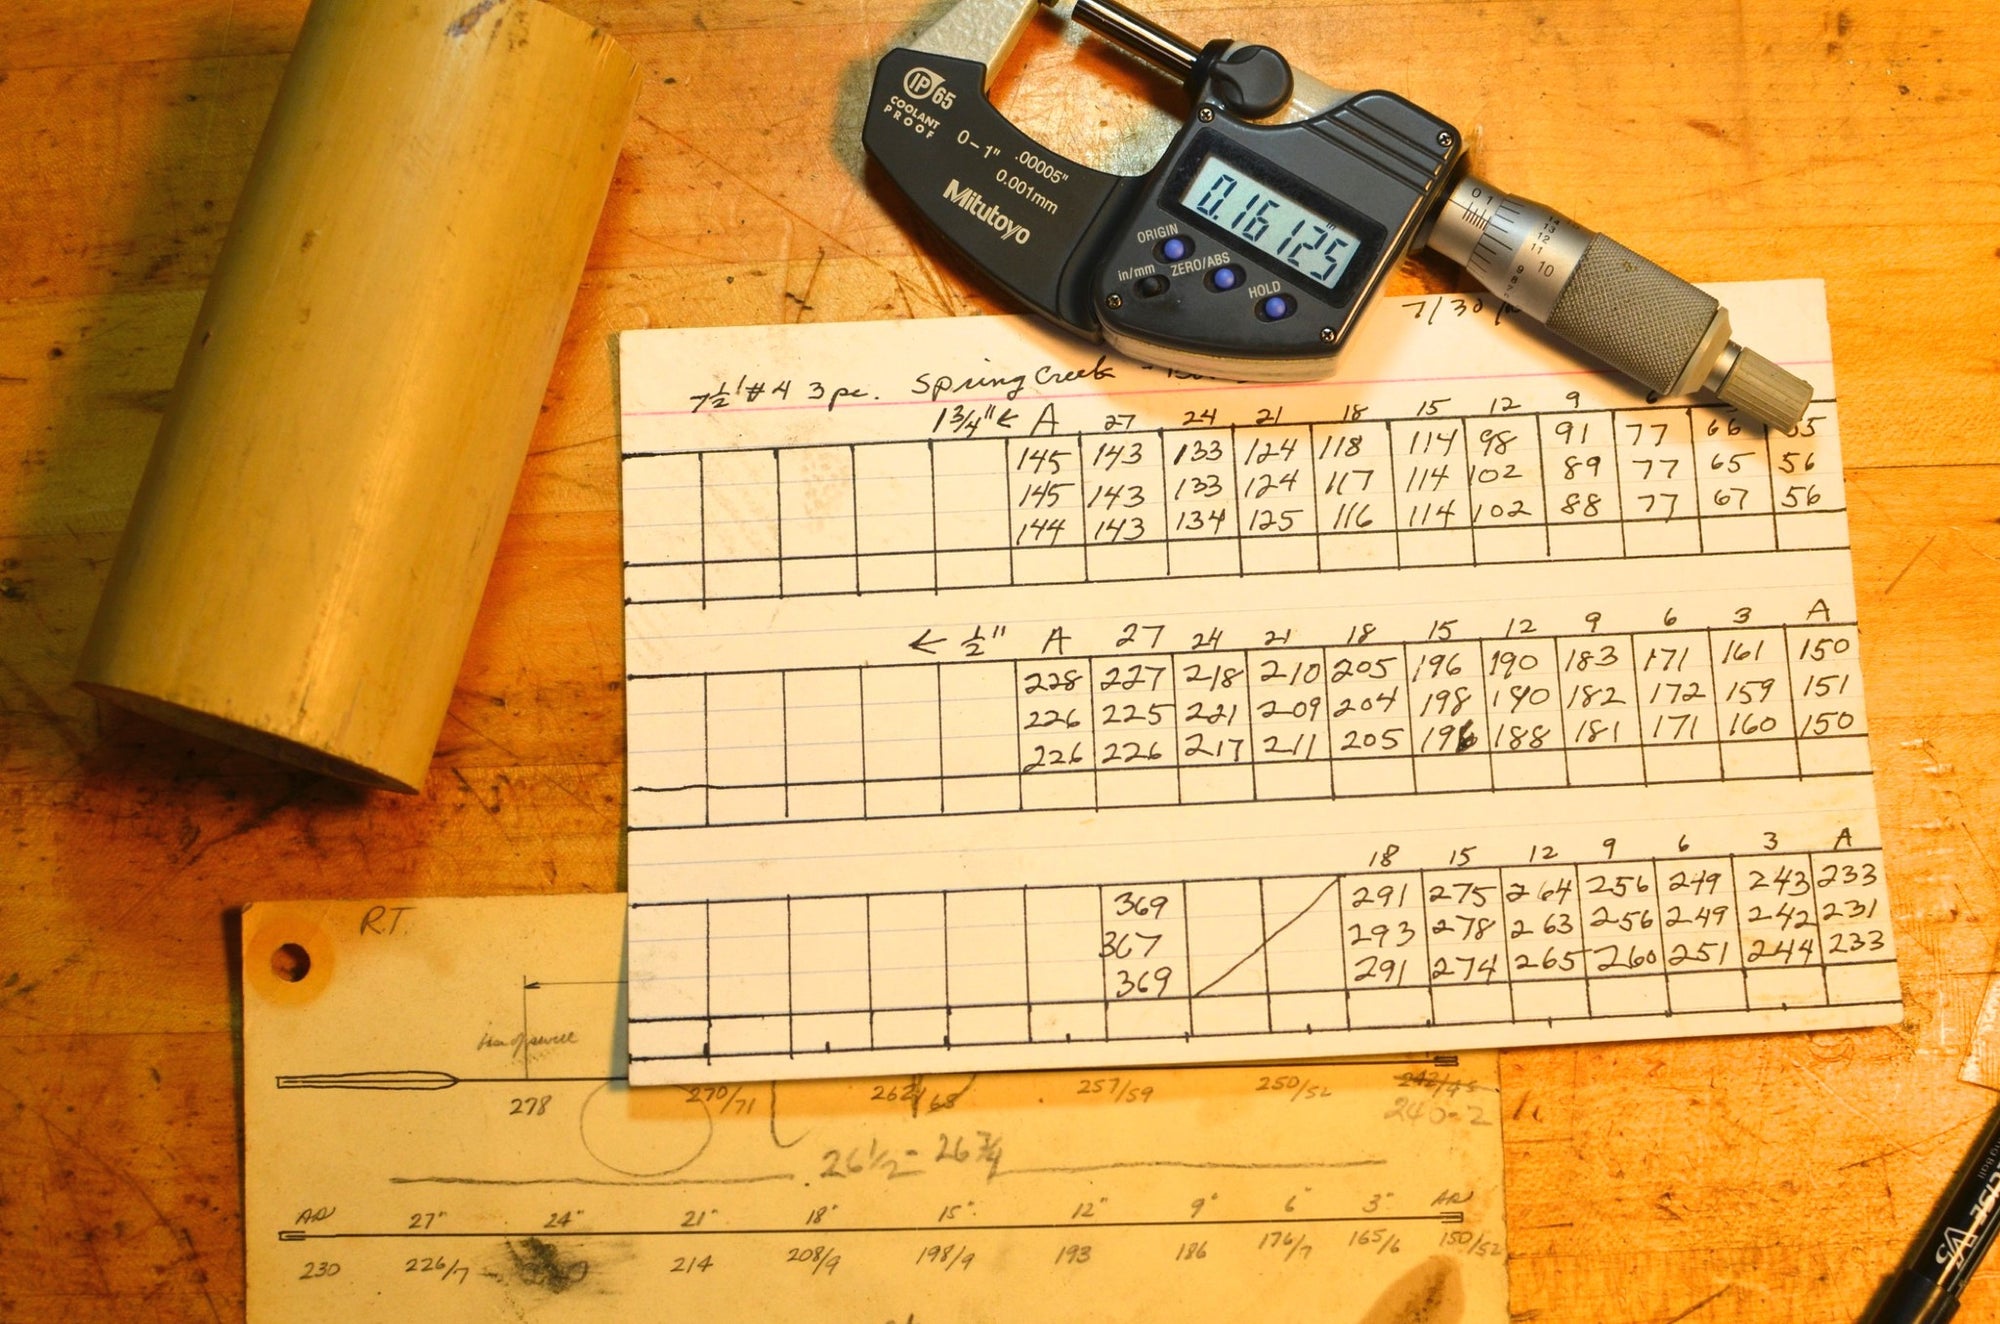 IP 65
COOLANT
PROOF
0-1" .00005"
0.001mm
Mitutoyo
0.16125
in
ORIGIN
in/mm ZERO/ABS
HOLD
0 1
14
13
12
11
10
9
8
7/30/
7½' #4 3 pc. Spring Creek -
1¾" ← A 27 24 21 18 15 12 9
145 143 133 124 118 114 98 91 77 66 55
145 143 133 124 117 114 102 89 77 65 56
144 143 134 125 116 114 102 88 77 67 56
← ½" A 27 24 21 18 15 12 9 6 3 A
228 227 218 210 205 196 190 183 171 161 150
226 225 221 209 204 198 190 182 172 159 151
226 226 217 211 205 196 188 181 171 160 150
18 15 12 9 6 3 A
369 291 275 264 256 249 243 233
367 293 278 263 256 249 242 231
369 291 274 265 260 251 244 233
R.T.
278 270/71 262/63 257/59 250/52
240-2
26½ - 26¾
27" 24" 21" 18" 15" 12" 9" 6" 3"
230 226/7 214 208/9 198/9 193 186 176/7 165/6 150/52
V5